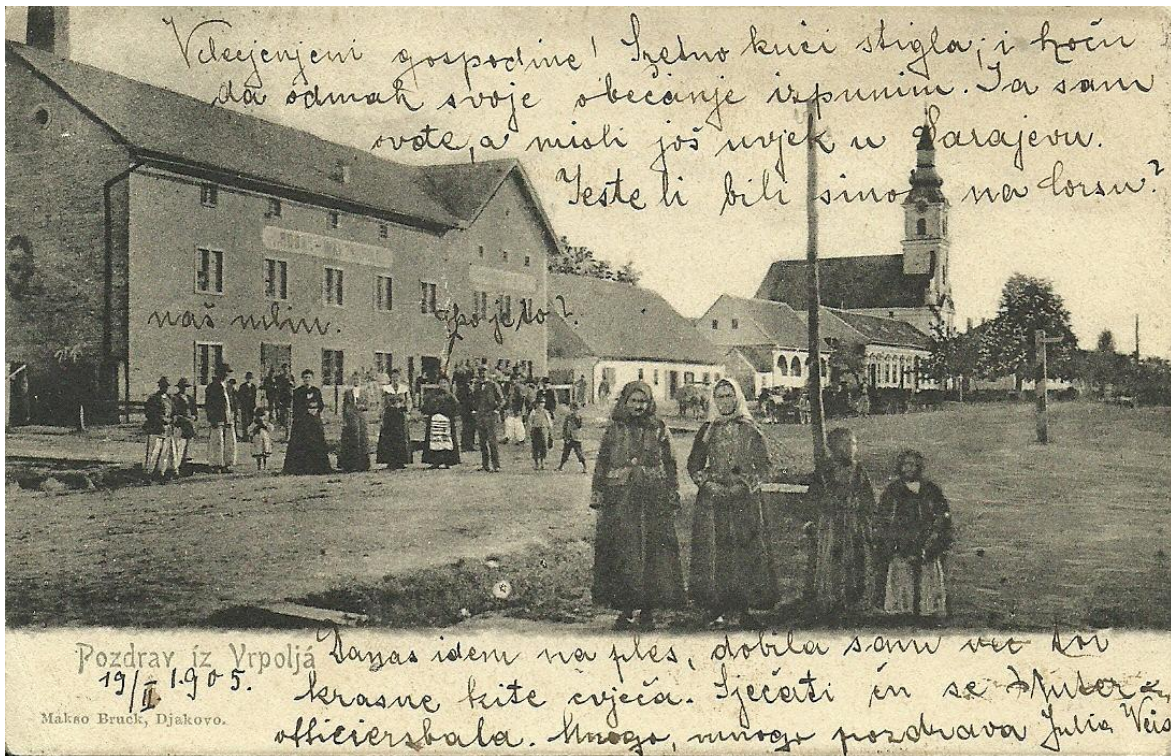 Vcijenjeni gospodine! Sretno kući stigla, i hoću
da odmah svoje obećanje izpunim. Ja sam
ovdje, a misli još uvjek u Sarajevu.
Jeste li bili sinoć na Corsu?
naš mlin.
Pozdrav iz Vrpoljá
19/II. 1905.
Danas idem na ples, dobila sam već tri
krasne kite cvjeća. Sjećati ću se Unter-
officiersbala. Mnogo, mnogo pozdrava Julia Weis
Makso Bruck, Djakovo.